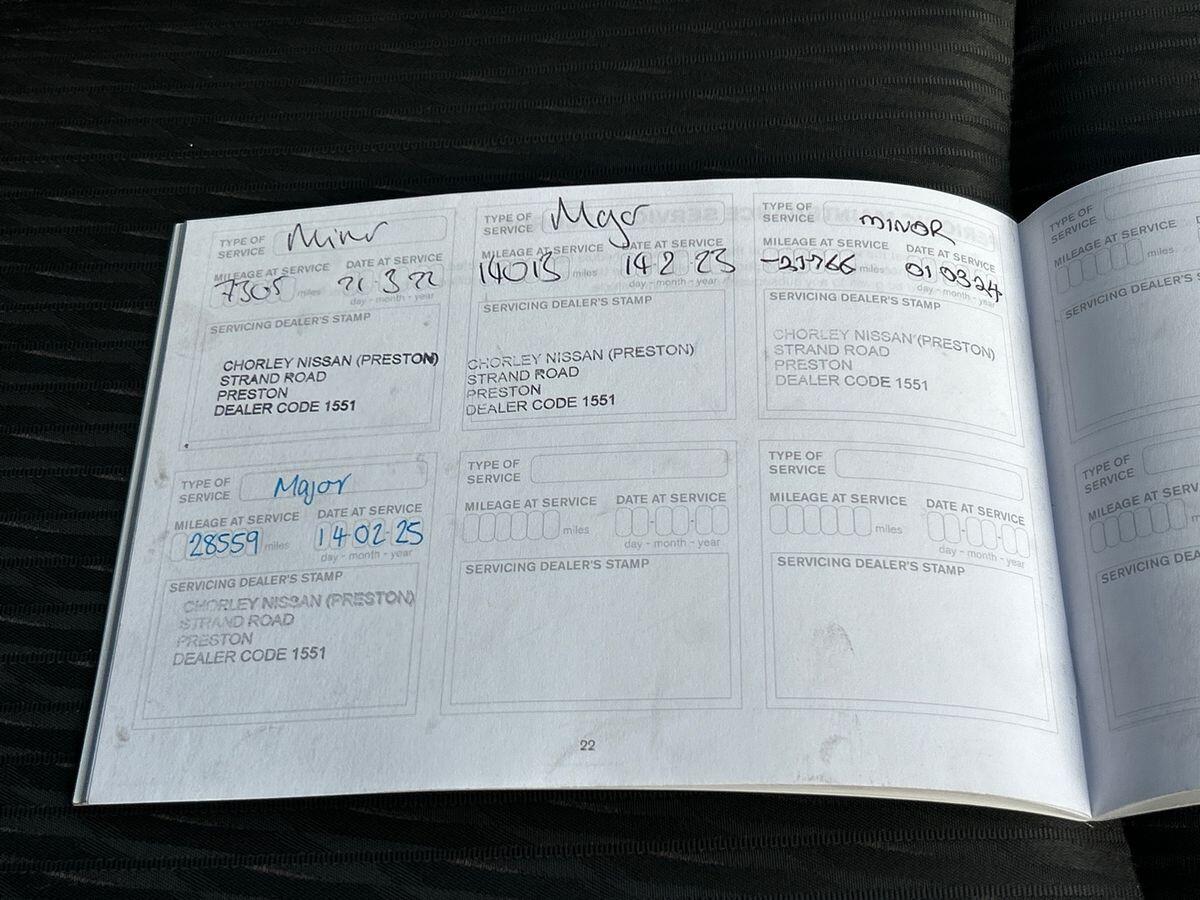 TYPE OF SERVICE Minr
MILEAGE AT SERVICE DATE AT SERVICE
7305 miles 21 3 22
day - month - year
SERVICING DEALER'S STAMP
CHORLEY NISSAN (PRESTON)
STRAND ROAD
PRESTON
DEALER CODE 1551
TYPE OF SERVICE
MILEAGE AT SERVICE DATE AT SERVICE
14013 miles 14 2 23
day - month - year
SERVICING DEALER'S STAMP
CHORLEY NISSAN (PRESTON)
STRAND ROAD
PRESTON
DEALER CODE 1551
TYPE OF SERVICE MINOR
MILEAGE AT SERVICE DATE AT SERVICE
miles 01 03 24
day - month - year
SERVICING DEALER'S STAMP
CHORLEY NISSAN (PRESTON)
STRAND ROAD
PRESTON
DEALER CODE 1551
TYPE OF SERVICE Major
MILEAGE AT SERVICE DATE AT SERVICE
28559 miles 14-02-25
day - month - year
SERVICING DEALER'S STAMP
CHORLEY NISSAN (PRESTON)
STRAND ROAD
PRESTON
DEALER CODE 1551
TYPE OF SERVICE
MILEAGE AT SERVICE DATE AT SERVICE
miles
day - month - year
SERVICING DEALER'S STAMP
TYPE OF SERVICE
MILEAGE AT SERVICE DATE AT SERVICE
miles
day - month - year
SERVICING DEALER'S STAMP
22
TYPE OF SERVICE
MILEAGE AT SERVICE
miles
SERVICING DEALER'S
TYPE OF SERVICE
MILEAGE AT
miles
SERVICING